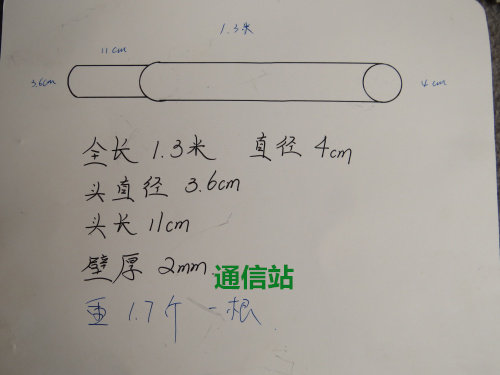 1.3米
11cm
3.6cm
4cm
全长 1.3米 直径 4cm
头直径 3.6cm
头长 11cm
壁厚 2mm
通信站
重 1.7斤 一根